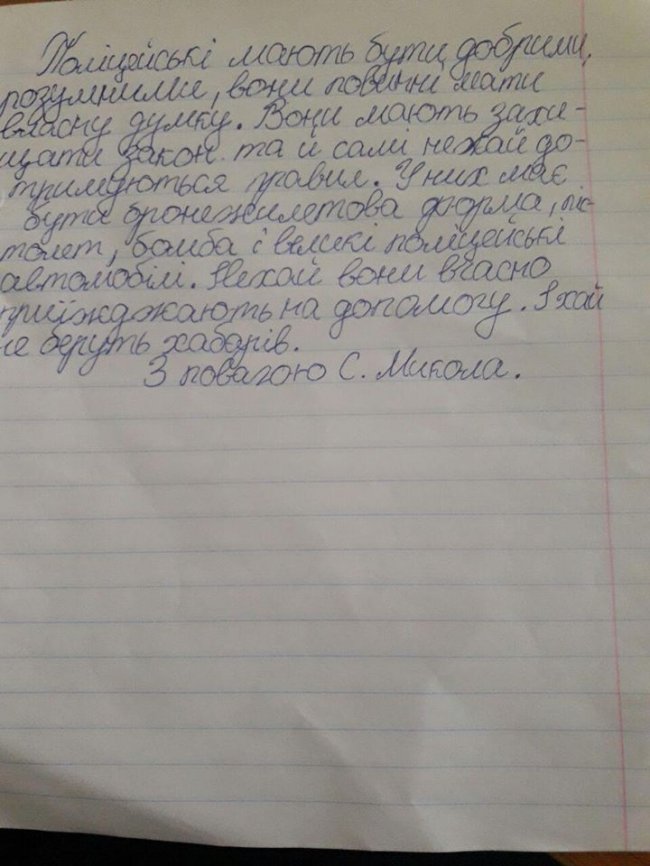 Поліцейські мають бути добрими,
розумними, вони повинні мати
власну думку. Вони мають захи-
щати закон та й самі нехай до-
тримуються правил. У них має
бути бронежилетова форма, піс-
толет, бомба і великі поліцейські
автомобілі. Нехай вони вчасно
приїжджають на допомогу. І хай
не беруть хабарів.
З повагою С. Микола.